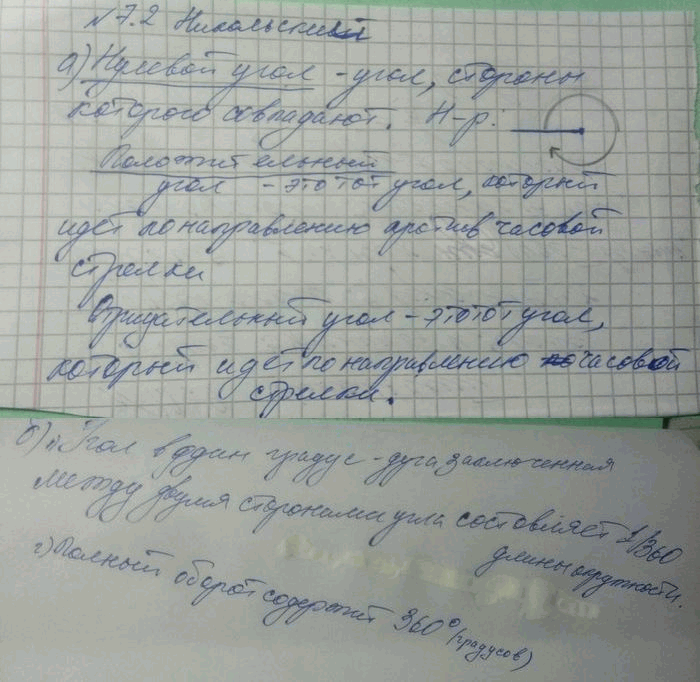 № 7.2 Никольский
а) Нулевой угол - угол, стороны
которого совпадают. Н-р:
Положительный
угол - это тот угол, который
идёт по направлению против часовой
стрелки
Отрицательный угол - это тот угол,
который идёт по направлению по часовой
стрелки.
б) 1) Угол в один градус - дуга заключенная
между двумя сторонами угла составляет 1/360
длины окружности.
г) Полный оборот содержит 360° (градусов)